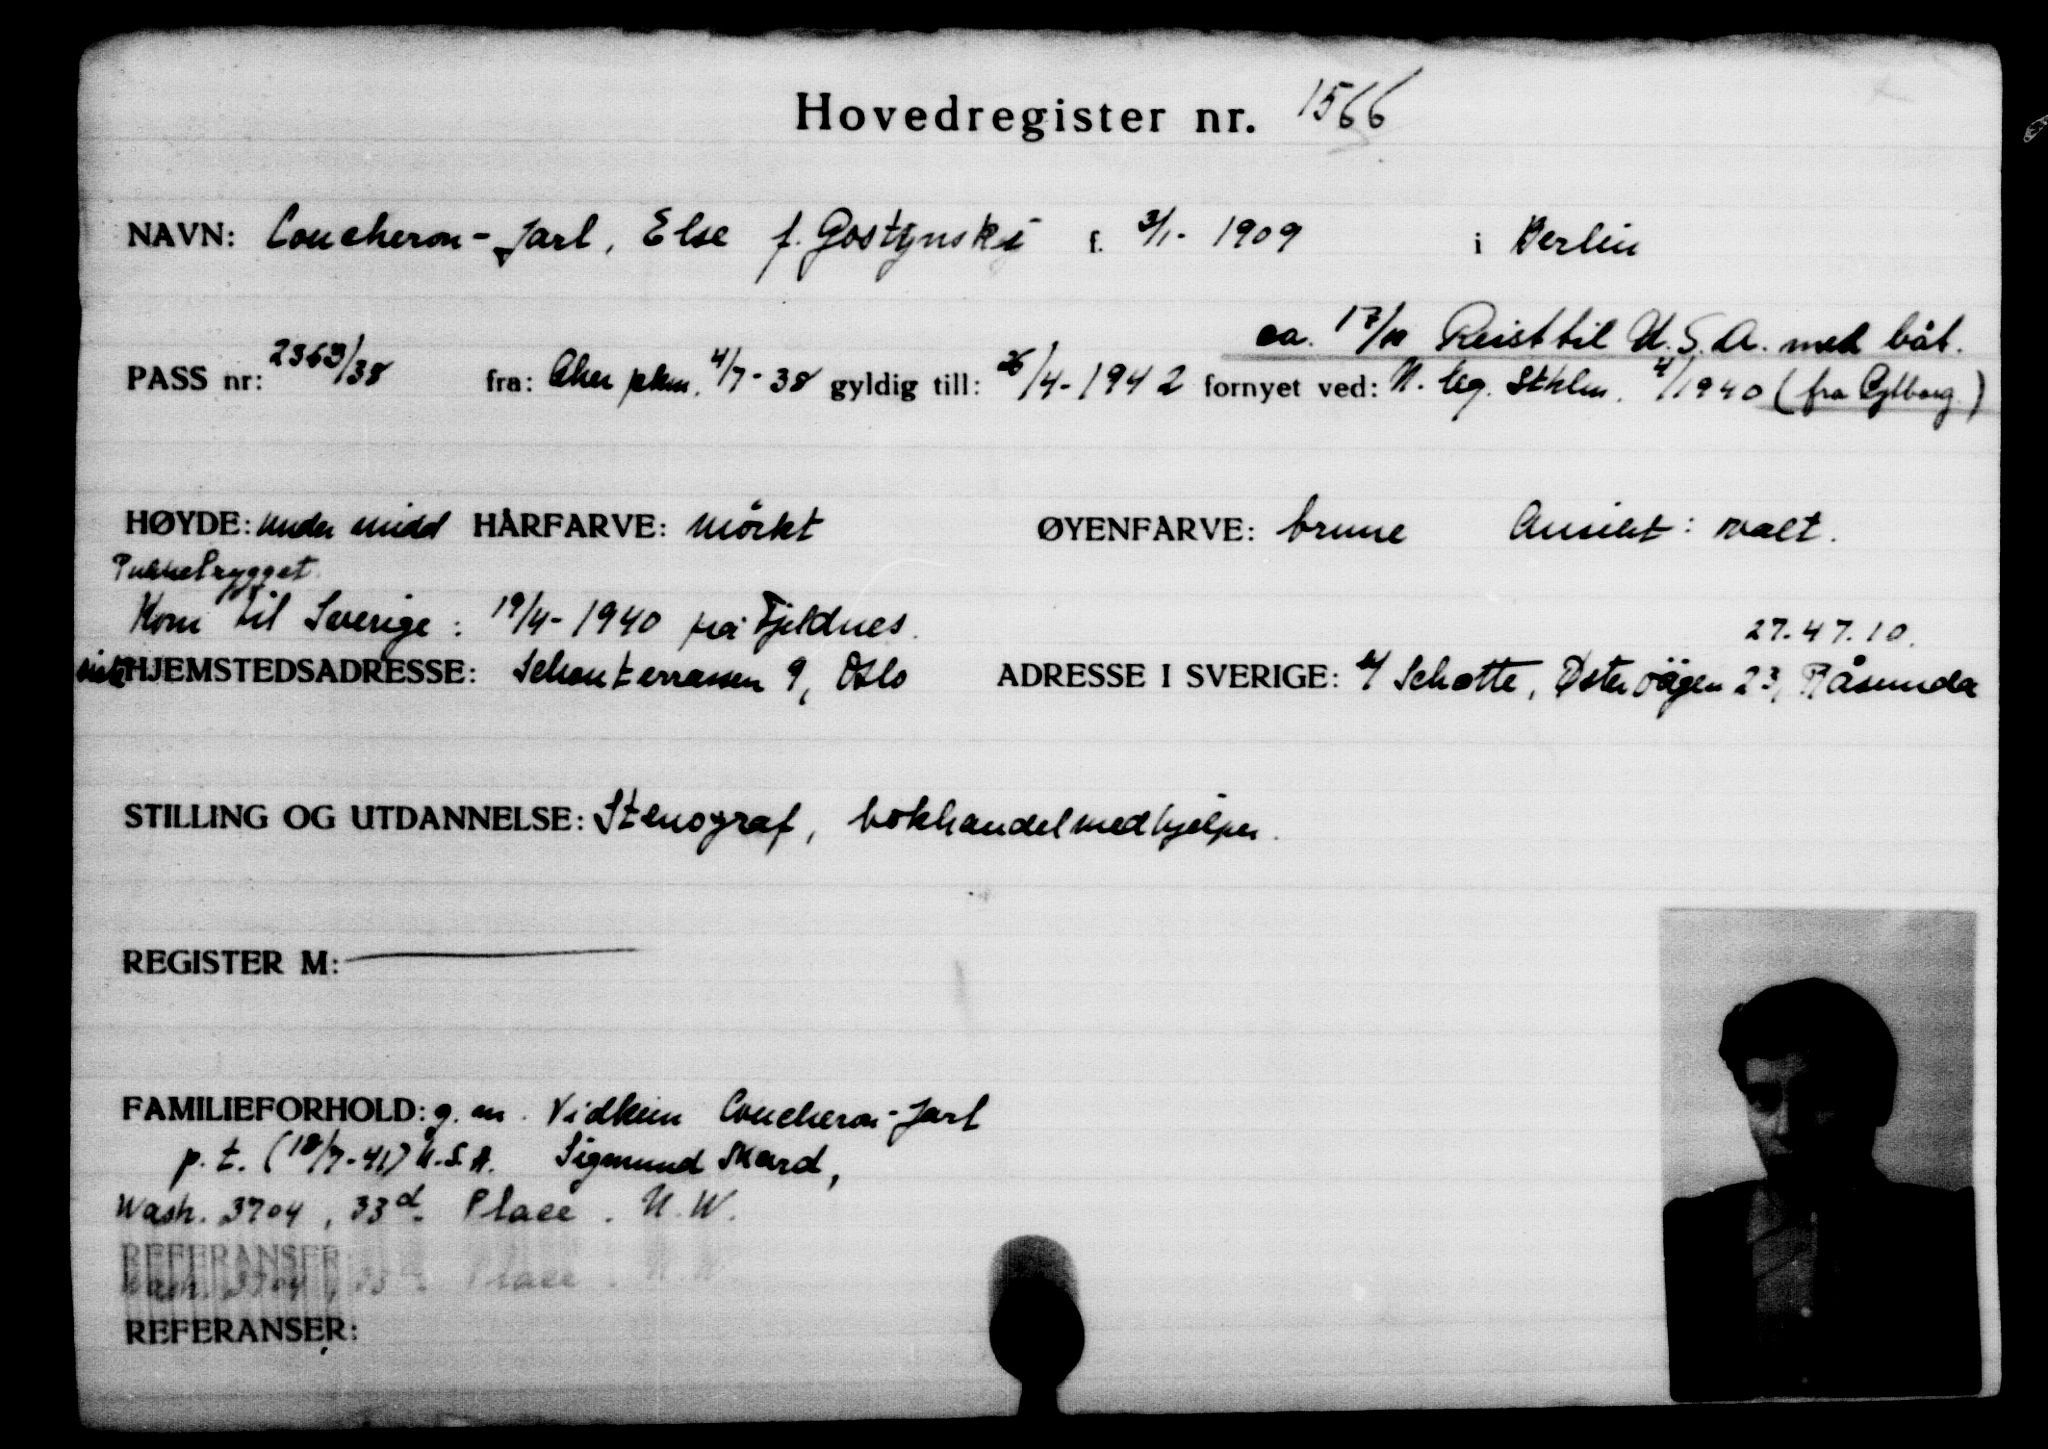 Hovedregister nr. 1566
NAVN: Coucheron-Jarl, Else f. Gostynski f. 3/1- 1909 i Berlin
ca. 17/10 Reist til U.S.A. med båt.
PASS nr: 2363/38 fra: Aker pkm. 4/7-38 gyldig till: 26/4-1942 fornyet ved: N. leg. Sthlm. 4/1940 (fra Gjtborg.)
HØYDE: under midd HÅRFARVE: mörkt ØYENFARVE: brune Ansikt: ovalt.
Pukkelrygget.
Kom til Sverige: 19/4-1940 fra Fjeldnes.
27.47.10.
sist HJEMSTEDSADRESSE: Schouterrassen 9, Oslo ADRESSE I SVERIGE: c/ Schotte, Østervägen 23, Råsunda
STILLING OG UTDANNELSE: Stenograf, bokhandelmedhjelper.
REGISTER M:
FAMILIEFORHOLD: g. m. Vidkun Coucheron-Jarl
p. t. (18/7-41) U.S.A. Sigmund Skard,
Wash. 3704, 33d. Place. N.W.
REFERANSER:
Wash. 3704, 33d. Place. N.W.
REFERANSER: